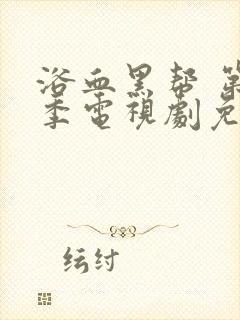 浴血黑帮 第
季电视剧免
纭纣